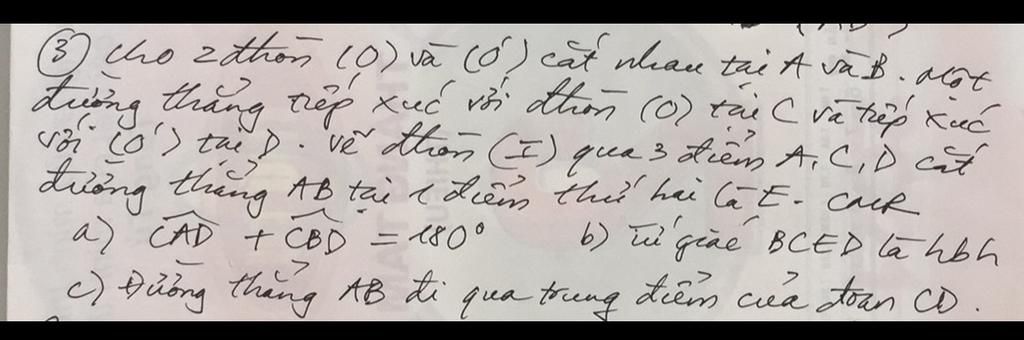 ③ Cho 2 đtròn (O) và (O') cắt nhau tại A và B. Một
đường thẳng tiếp xúc với đtròn (O) tại C và tiếp xúc
với (O') tại D. Vẽ đtròn (I) qua 3 điểm A, C, D cắt
đường thẳng AB tại 1 điểm thứ hai là E. CMR
a) CAD + CBD = 180° b) Tứ giác BCED là hbh
c) Đường thẳng AB đi qua trung điểm của đoạn CD.